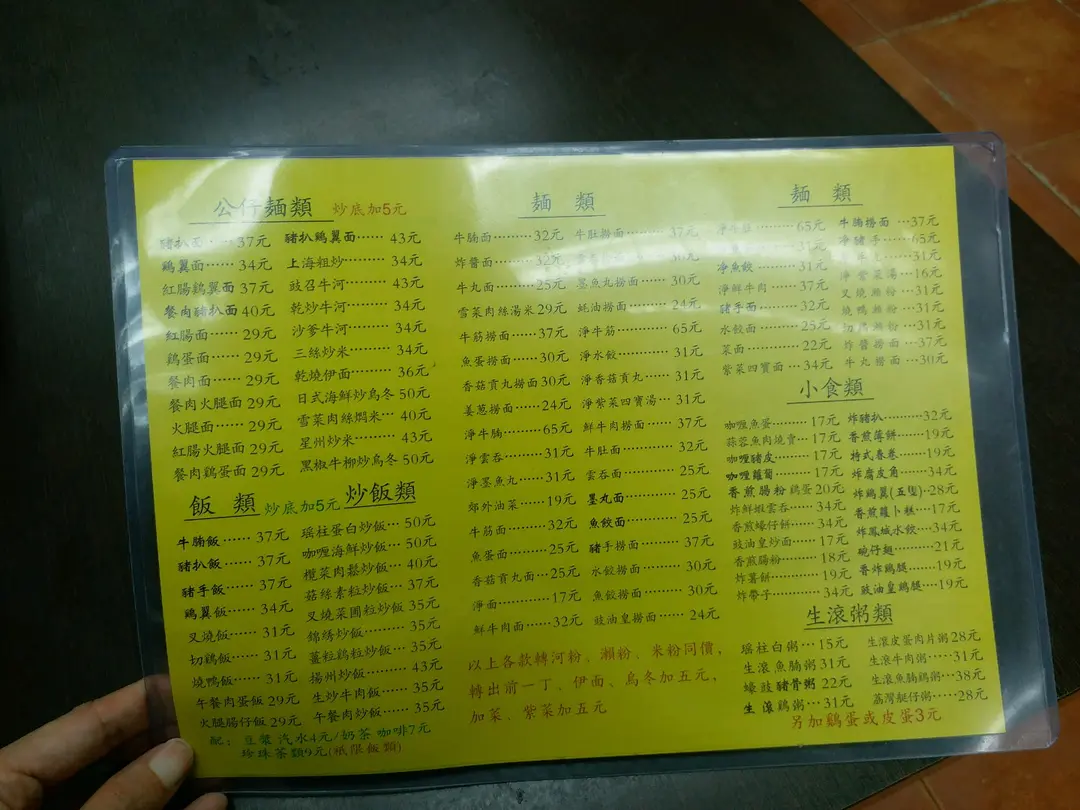 公仔麵類 炒底加5元
豬扒面……37元
鷄翼面……34元
紅腸鷄翼面 37元
餐肉豬扒面 40元
紅腸面……29元
鷄蛋面……29元
餐肉面……29元
餐肉火腿面 29元
火腿面……29元
紅腸火腿面 29元
餐肉鷄蛋面 29元
豬扒鷄翼面……43元
上海粗炒………34元
豉召牛河………43元
乾炒牛河………34元
沙爹牛河………34元
三絲炒米………34元
乾燒伊面………36元
日式海鮮炒烏冬 50元
雪菜肉絲焗米…40元
星州炒米………43元
黑椒牛柳炒烏冬 50元
飯 類 炒底加5元
牛腩飯……37元
豬扒飯……37元
豬手飯……37元
鷄翼飯……34元
叉燒飯……31元
切鷄飯……31元
燒鴨飯……31元
午餐肉蛋飯 29元
火腿腸仔飯 29元
炒飯類
瑶柱蛋白炒飯…50元
咖喱海鮮炒飯…50元
欖菜肉鬆炒飯…40元
菇絲素粒炒飯…37元
叉燒菜圃粒炒飯 35元
錦綉炒飯………35元
薑粒鷄粒炒飯…35元
揚州炒飯………43元
生炒牛肉飯……35元
午餐肉炒飯……35元
配：豆漿 汽水4元/奶茶 咖啡7元
珍珠茶類9元(祇限飯類)
麵 類
牛腩面………32元
炸醬面………32元
牛丸面………25元
雪菜肉絲湯米 29元
牛筋撈面……37元
魚蛋撈面……30元
香菇貢丸撈面 30元
姜葱撈面……24元
淨牛腩………65元
淨雲吞………31元
淨墨魚丸……31元
郊外油菜……19元
牛筋面………32元
魚蛋面………25元
香菇貢丸面…25元
淨面…………17元
鮮牛肉面……32元
牛肚撈面………37元
墨魚丸撈面……30元
蚝油撈面………24元
淨牛筋…………65元
淨水餃…………31元
淨香菇貢丸……31元
淨紫菜四寶湯…31元
鮮牛肉撈面……37元
牛肚面…………32元
雲吞面…………25元
墨丸面…………25元
魚餃面…………25元
豬手撈面………37元
水餃撈面………30元
魚餃撈面………30元
豉油皇撈面……24元
以上各款轉河粉、瀨粉、米粉同價，
轉出前一丁、伊面、烏冬加五元，
加菜、紫菜加五元
麵 類
65元
31元
淨魚餃………31元
淨鮮牛肉……37元
豬手面………32元
水餃面………25元
菜面…………22元
紫菜四寶面…34元
牛腩撈面…37元
淨豬手……65元
31元
淨紫菜湯…16元
叉燒瀨粉…31元
燒鴨瀨粉…31元
切鷄瀨粉…31元
炸醬撈面…37元
牛丸撈面…30元
小食類
咖喱魚蛋………17元
蒜蓉魚肉燒賣…17元
咖喱豬皮………17元
咖喱蘿蔔………17元
香煎腸粉 鷄蛋20元
炸鮮蝦雲吞……34元
香煎蠔仔餅……34元
豉油皇炒面……17元
香煎腸粉………18元
炸薯餅…………19元
炸帶子…………34元
炸豬扒…………32元
香煎薄餅………19元
特式春卷………19元
炸腐皮角………34元
炸鷄翼(五隻)…28元
香煎蘿卜糕……17元
炸鳳城水餃……34元
碗仔翅…………21元
香炸鷄腿………19元
豉油皇鷄腿……19元
生滾粥類
瑶柱白粥…15元
生滾魚腩粥31元
蠔豉豬骨粥 22元
生滾鷄粥…31元
生滾皮蛋肉片粥28元
生滾牛肉粥……31元
生滾魚腩鷄粥…38元
荔灣艇仔粥……28元
另加鷄蛋或皮蛋3元